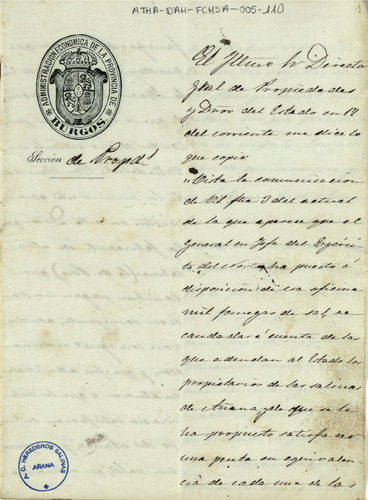 ATHA-DAH-FCHSA-005-110
1
ADMINISTRACION ECONOMICA DE LA PROVINCIA DE
BURGOS.
Sección de Propds
El Ilmo Sr Director
Gral de Propiedades
y Dros del Estado en 12
del corriente me dice lo
que copio
"Vista la comunicacion
de V.S. fha 3 del actual
de la que aparece que el
General en Jefe del Ejérci
to del Norte ha puesto á
disposicion de esa oficina
mil fanegas de sal, re
caudadas á cuenta de las
que adeudan al Estado los
propietarios de las salinas
de Añana, de que se le
ha propuesto satisfacer
una peseta en equivalen
cia de cada una de las
A.C. HEREDEROS SALINAS
AÑANA